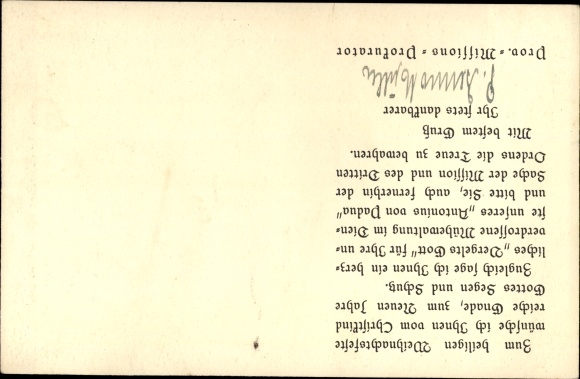 Zum heiligen Weihnachtsfeste
wünsche ich Ihnen vom Christkind
reiche Gnade, zum Neuen Jahre
Gottes Segen und Schutz.
Zugleich sage ich Ihnen ein herz-
liches „Vergelts Gott“ für Ihre un-
verdrossene Mühewaltung im Dien-
ste unseres „Antonius von Padua“
und bitte Sie, auch fernerhin der
Sache der Mission und des Dritten
Ordens die Treue zu bewahren.
Mit bestem Gruß
Ihr stets dankbarer
P.
Prov.-Missions-Prokurator